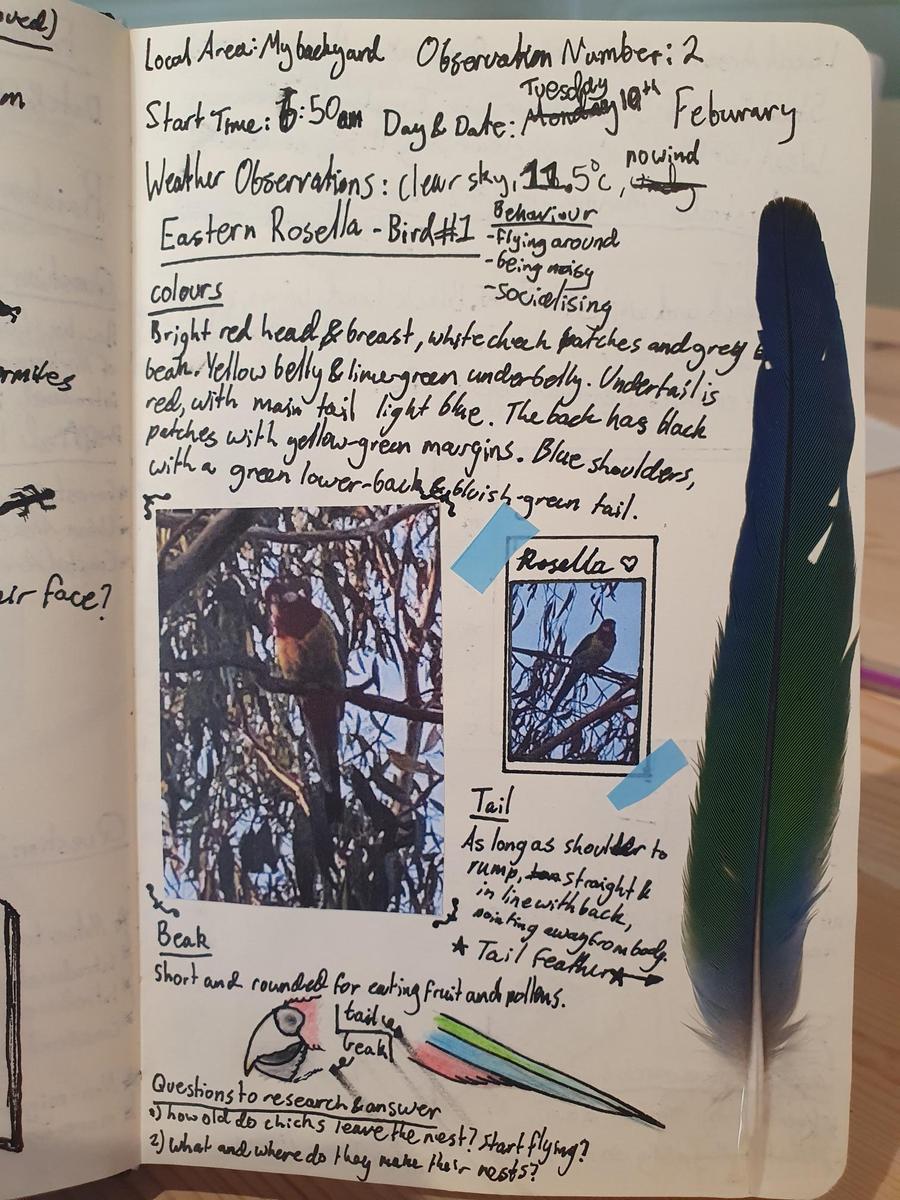 oved)
m
ormites
ir face?
Local Area: My backyard Observation Number: 2
Start Time: 6:50am Day & Date: Monday Tuesday 10th Feburary
Weather Observations: clear sky, 11.5°c, no wind
Eastern Rosella - Bird #1
Behaviour
- flying around
- being noisy
- socialising
colours
Bright red head & breast, white cheek patches and grey
beak. Yellow belly & lime green underbelly. Undertail is
red, with main tail light blue. The back has black
patches with yellow-green margins. Blue shoulders,
with a green lower-back & bluish-green tail.
Rosella ♡
Tail
As long as shoulder to
rump, straight &
in line with back,
pointing away from body.
★ Tail Feather
Beak
Short and rounded for eating fruit and pollens.
tail
beak
Questions to research & answer
1) how old do chicks leave the nest? Start flying?
2) what and where do they make their nests?